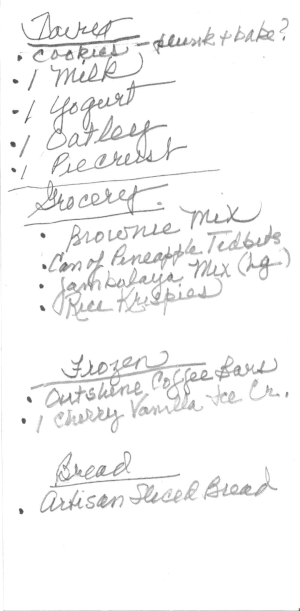 Dairy
• Cookies - plunk & bake?
• 1 Milk
• 1 Yogurt
• 1 Oatley
• 1 Piecrust
Grocery
• Brownie Mix
• Can of Pineapple Tidbits
• Jambalaya Mix (lg.)
• Rice Krispies
Frozen
• Outshine Coffee Bars
• 1 Cherry Vanilla Ice Cr.
Bread
• Artisan Sliced Bread